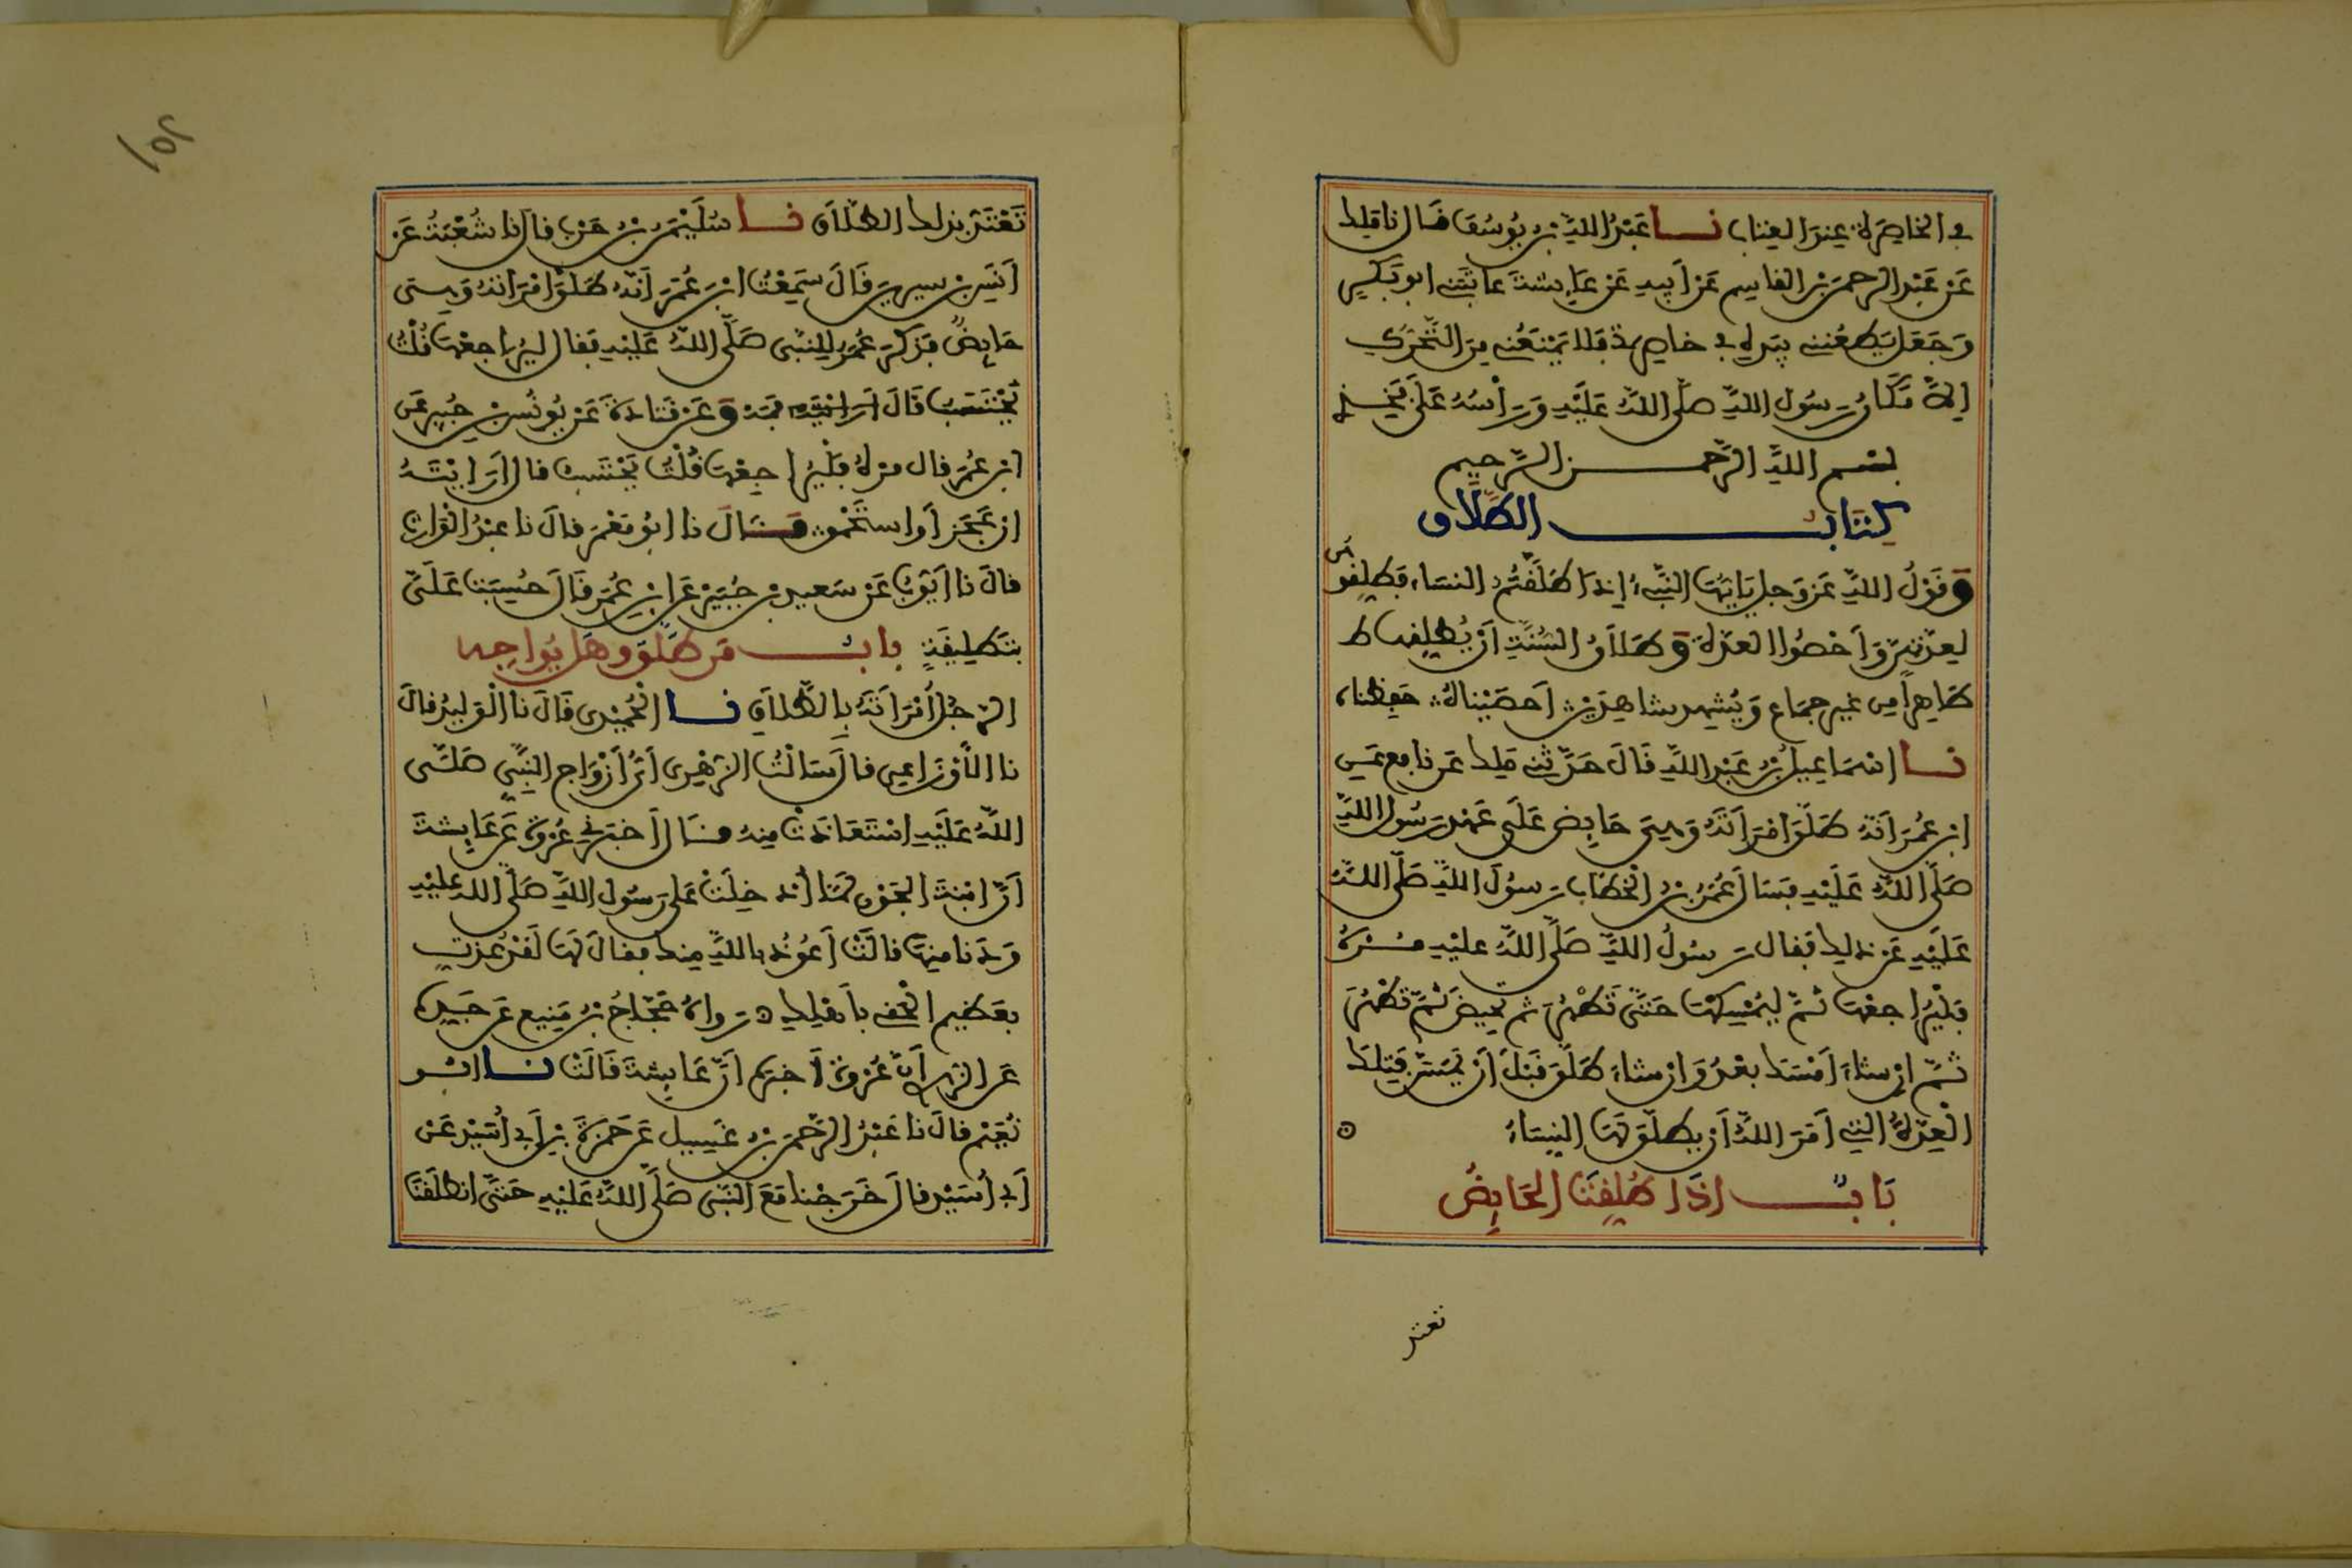 في الخاصرة عند العتاب نا عبد الله بن يوسف قال نا ملك
عن عبد الرحمن بن القاسم عن أبيه عن عايشة عاتبني ابو بكر
وجعل يطعنني بيده في خاصرتي فلا يمنعني من التحرك
إلا مكان رسول الله صلى الله عليه ورأسه على فخذي
بسم الله الرحمن الرحيم
كتاب الطلاق
وقول الله عز وجل يايها النبيء إذا طلقتم النساء فطلقوهن
لعدتهن وأحصوا العدة وطلاق السنة أن يطلقها
طاهرا من غير جماع ويشهد شاهدين أحصيناه حفظناه
نا اسماعيل بن عبد الله قال حدثني ملك عن نافع عن
ابن عمر أنه طلق امرأته وهي حايض على عهد رسول الله
صلى الله عليه فسأل عمر بن الخطاب رسول الله صلى الله
عليه عن ذلك فقال رسول الله صلى الله عليه مره
فليراجعها ثم ليمسكها حتى تطهر ثم تحيض ثم تطهر
ثم إن شاء أمسك بعد وان شاء طلق قبل أن يمس فتلك
العدة التي أمر الله أن يطلق لها النساء
باب اذا طلقت الحايض
تعتد
تعتد بذلك الطلاق نا سليمن بن حرب قال نا شعبة عن
أنس بن سيرين قال سمعت ابن عمر أنه طلق امرأته وهي
حايض فذكر عمر للنبي صلى الله عليه فقال ليراجعها قلت
تحتسب قال فمه وعن قتادة عن يونس بن جبير عن
ابن عمر قال مره فليراجعها قلت تحتسب قال أرايته
إن عجز أو استحمق وقال نا ابو معمر قال نا عبد الوارث
قال نا أيوب عن سعيد بن جبير عن ابن عمر قال حسبت علي
بتطليقة باب من طلق وهل يواجه
الرجل امرأته بالطلاق نا الحميدي قال نا الوليد قال
نا الأوزاعي قال سألت الزهري أي أزواج النبي صلى
الله عليه استعاذت منه قال أخبرني عروة عن عايشة
أن ابنة الجون لما أدخلت على رسول الله صلى الله عليه
ودنا منها قالت أعوذ بالله منك فقال لها لقد عذت
بعظيم الحقي بأهلك ه رواه حجاج بن منيع عن جده
عن الزهري أن عروة أخبره أن عايشة قالت نا ابو
نعيم قال نا عبد الرحمن بن غسيل عن حمزة بن أبي أسيد عن
أبي أسيد قال خرجنا مع النبي صلى الله عليه حتى انطلقنا